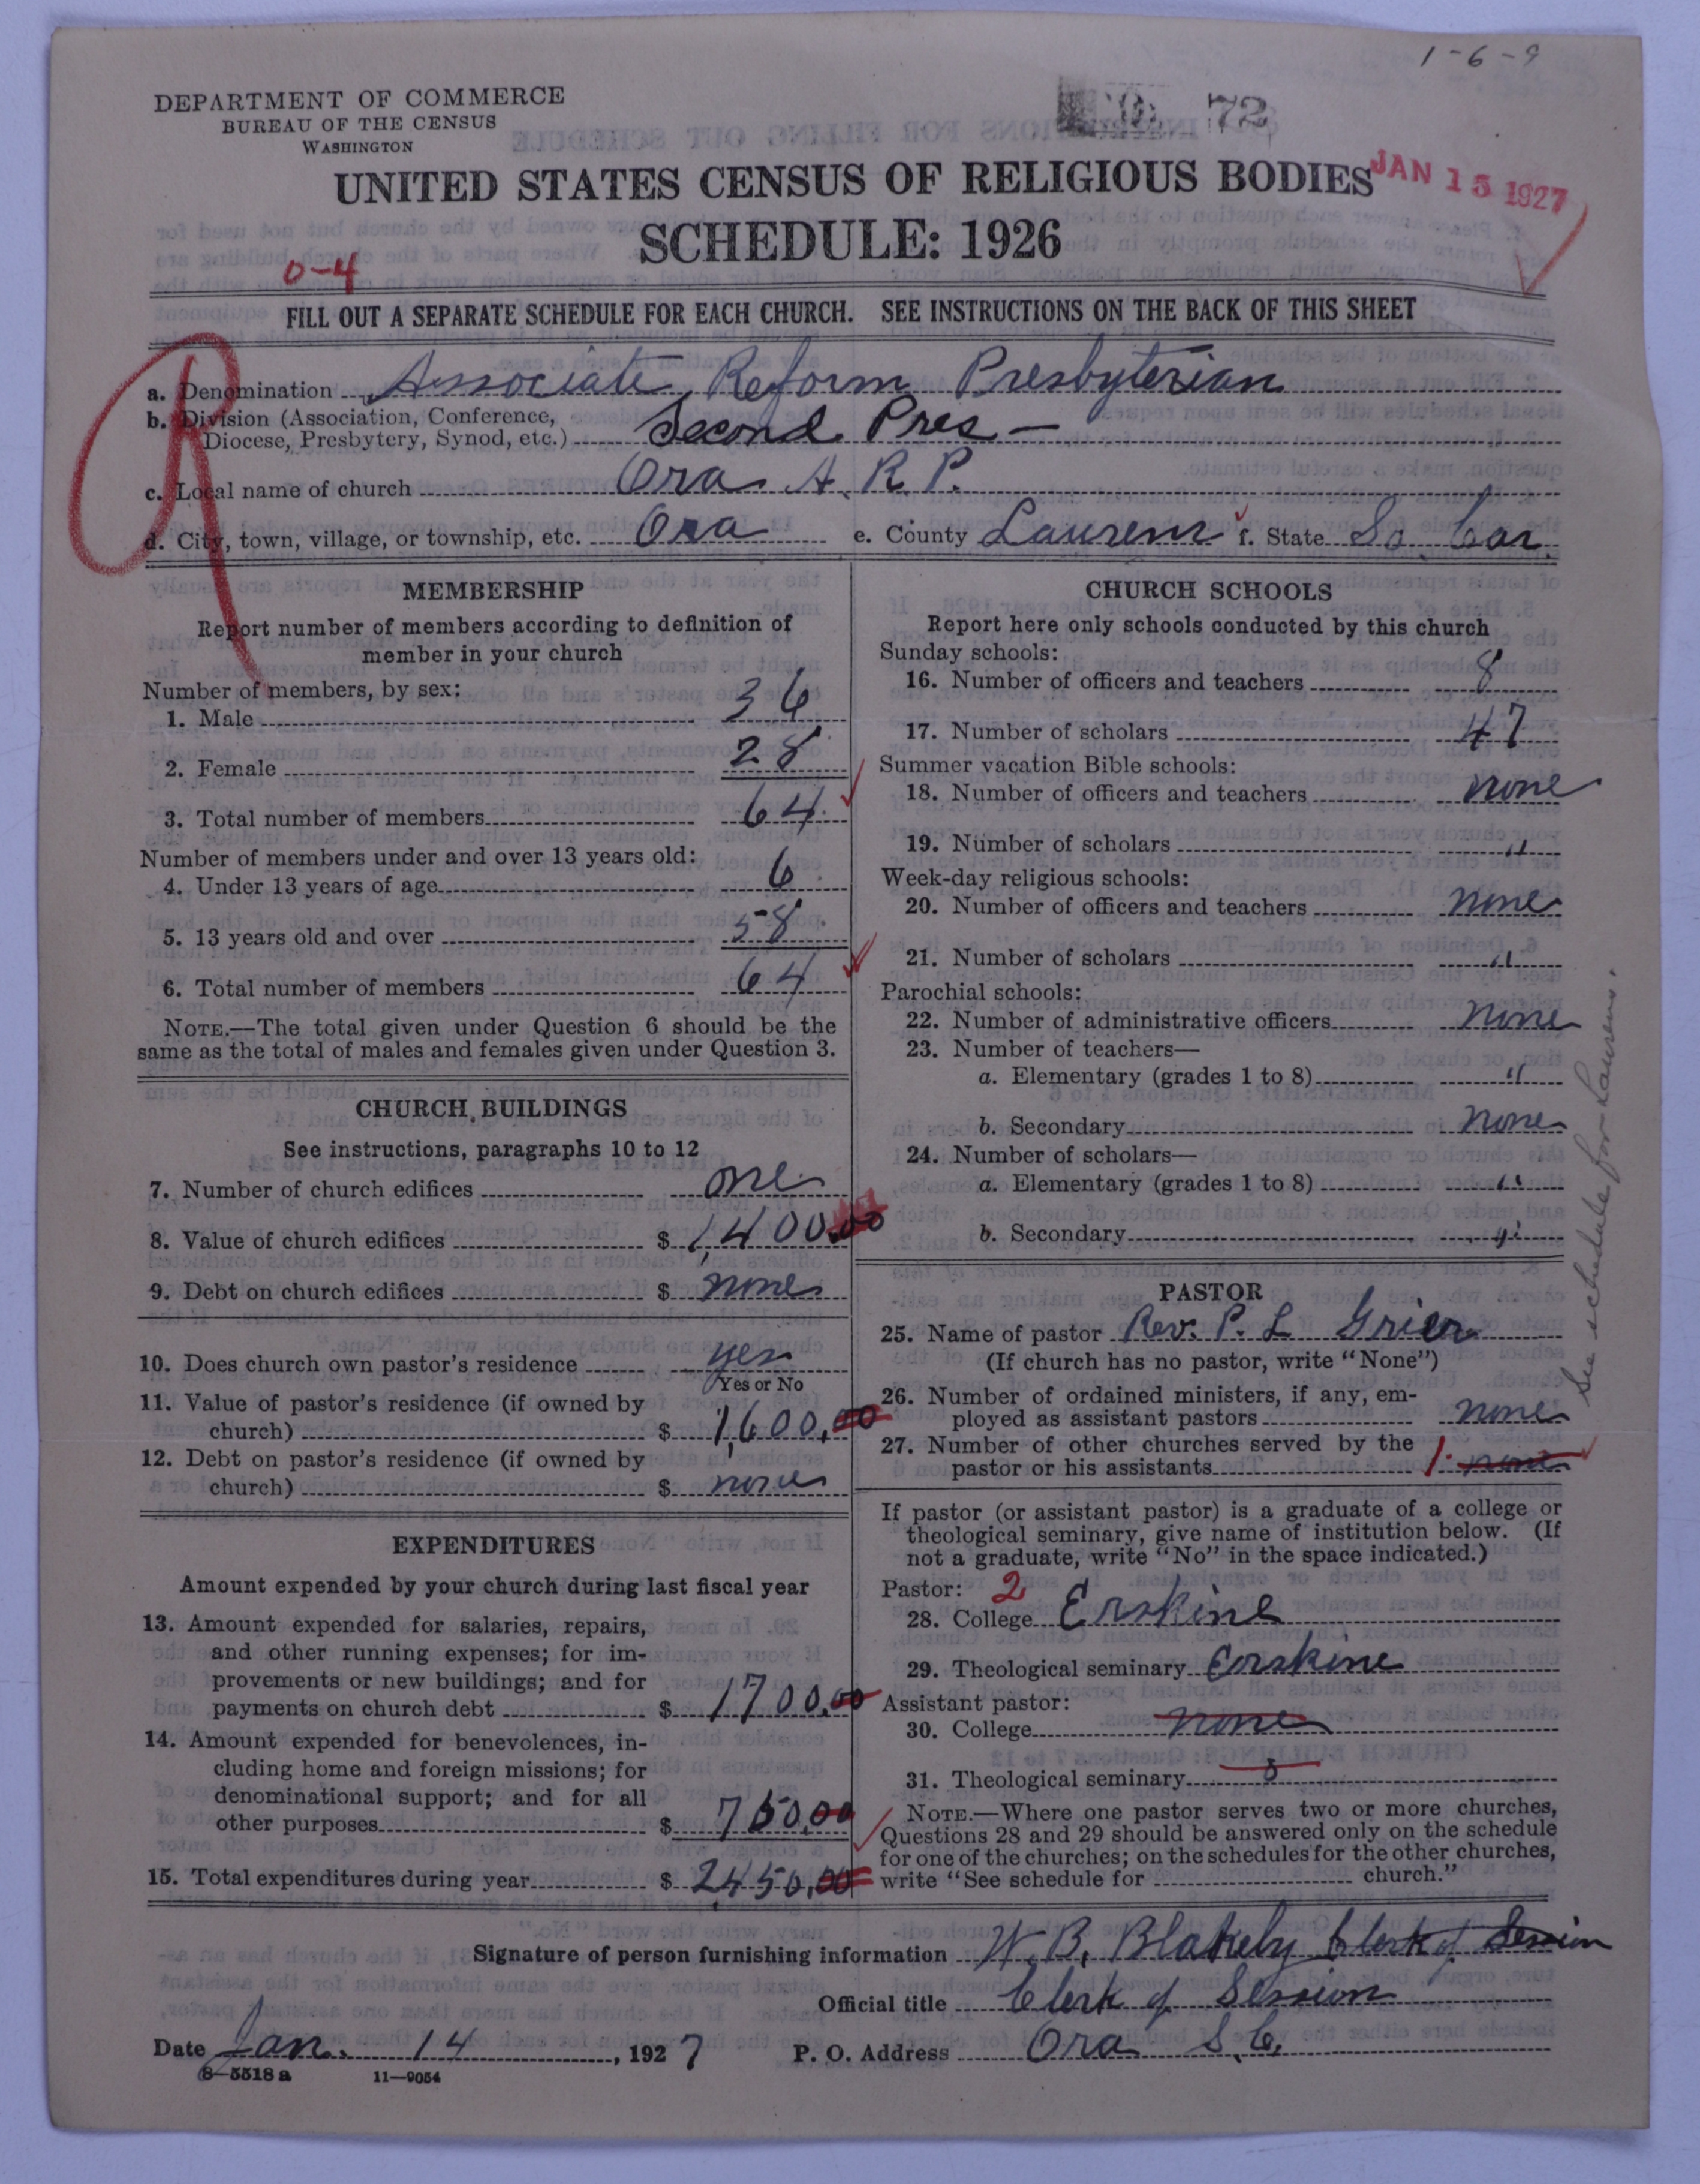 1-6-9
DEPARTMENT OF COMMERCE
BUREAU OF THE CENSUS
WASHINGTON
72
UNITED STATES CENSUS OF RELIGIOUS BODIES
JAN 15 1927
SCHEDULE: 1926
0-4
FILL OUT A SEPARATE SCHEDULE FOR EACH CHURCH. SEE INSTRUCTIONS ON THE BACK OF THIS SHEET
R
a. Denomination Associate Reform Presbyterian
b. Division (Association, Conference,
Diocese, Presbytery, Synod, etc.) Second Pres —
c. Local name of church Ora A. R. P.
d. City, town, village, or township, etc. Ora e. County Laurens f. State So. Car.
MEMBERSHIP
Report number of members according to definition of
member in your church
Number of members, by sex:
1. Male 36
2. Female 28
3. Total number of members 64
Number of members under and over 13 years old:
4. Under 13 years of age 6
5. 13 years old and over 58
6. Total number of members 64
NOTE.—The total given under Question 6 should be the
same as the total of males and females given under Question 3.
CHURCH BUILDINGS
See instructions, paragraphs 10 to 12
7. Number of church edifices one
8. Value of church edifices $ 1400.00
9. Debt on church edifices $ none
10. Does church own pastor's residence yes
Yes or No
11. Value of pastor's residence (if owned by
church) $ 1,600,00
12. Debt on pastor's residence (if owned by
church) $ none
EXPENDITURES
Amount expended by your church during last fiscal year
13. Amount expended for salaries, repairs,
and other running expenses; for im-
provements or new buildings; and for
payments on church debt $ 1700.00
14. Amount expended for benevolences, in-
cluding home and foreign missions; for
denominational support; and for all
other purposes $ 750.00
15. Total expenditures during year $ 2450.00
CHURCH SCHOOLS
Report here only schools conducted by this church
Sunday schools:
16. Number of officers and teachers 8
17. Number of scholars 47
Summer vacation Bible schools:
18. Number of officers and teachers none
19. Number of scholars "
Week-day religious schools:
20. Number of officers and teachers none
21. Number of scholars "
Parochial schools:
22. Number of administrative officers none
23. Number of teachers—
a. Elementary (grades 1 to 8) "
b. Secondary none
24. Number of scholars—
a. Elementary (grades 1 to 8) "
b. Secondary "
PASTOR
25. Name of pastor Rev. P. L Grier
(If church has no pastor, write "None")
26. Number of ordained ministers, if any, em-
ployed as assistant pastors none
27. Number of other churches served by the
pastor or his assistants 1. none
If pastor (or assistant pastor) is a graduate of a college or
theological seminary, give name of institution below. (If
not a graduate, write "No" in the space indicated.)
Pastor: 2
28. College Erskine
29. Theological seminary Erskine
Assistant pastor:
30. College none
31. Theological seminary
NOTE.—Where one pastor serves two or more churches,
Questions 28 and 29 should be answered only on the schedule
for one of the churches; on the schedules for the other churches,
write "See schedule for church."
See schedule for Laurens.
Signature of person furnishing information W. B. Blakely Clerk of Session
Official title Clerk of Session
Date Jan. 14, 1927 P. O. Address Ora S.C.
8—5518 a 11—9054